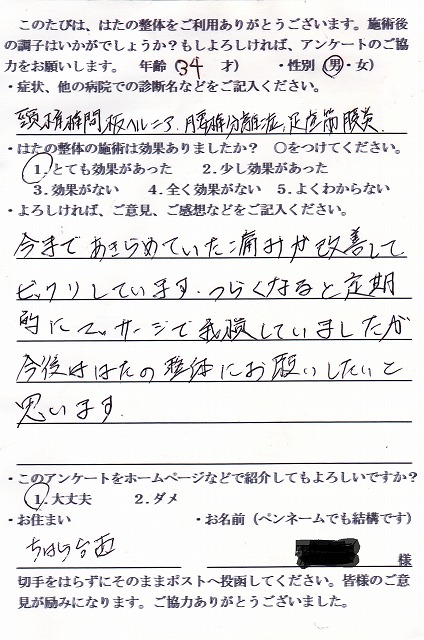 このたびは、はたの整体をご利用ありがとうございます。施術後
の調子はいかがでしょうか？もしよろしければ、アンケートのご協
力をお願いします。 年齢（34 才） ・性別（男・女）
・症状、他の病院での診断名などをご記入ください。
頸椎椎間板ヘルニア、腰椎分離症、足底筋膜炎
・はたの整体の施術は効果ありましたか？ 〇をつけてください。
1.とても効果があった 2.少し効果があった
3.効果がない 4.全く効果がない 5.よくわからない
・よろしければ、ご意見、ご感想などをご記入ください。
今まであきらめていた痛みが改善して
ビックリしています。つらくなると定期
的にマッサージで我慢していましたが
今後ははたの整体にお願いしたいと
思います。
・このアンケートをホームページなどで紹介してもよろしいですか？
1.大丈夫 2.ダメ
・お住まい ・お名前（ペンネームでも結構です）
ちはら台西 様
切手をはらずにそのままポストへ投函してください。皆様のご意
見が励みになります。ご協力ありがとうございました。